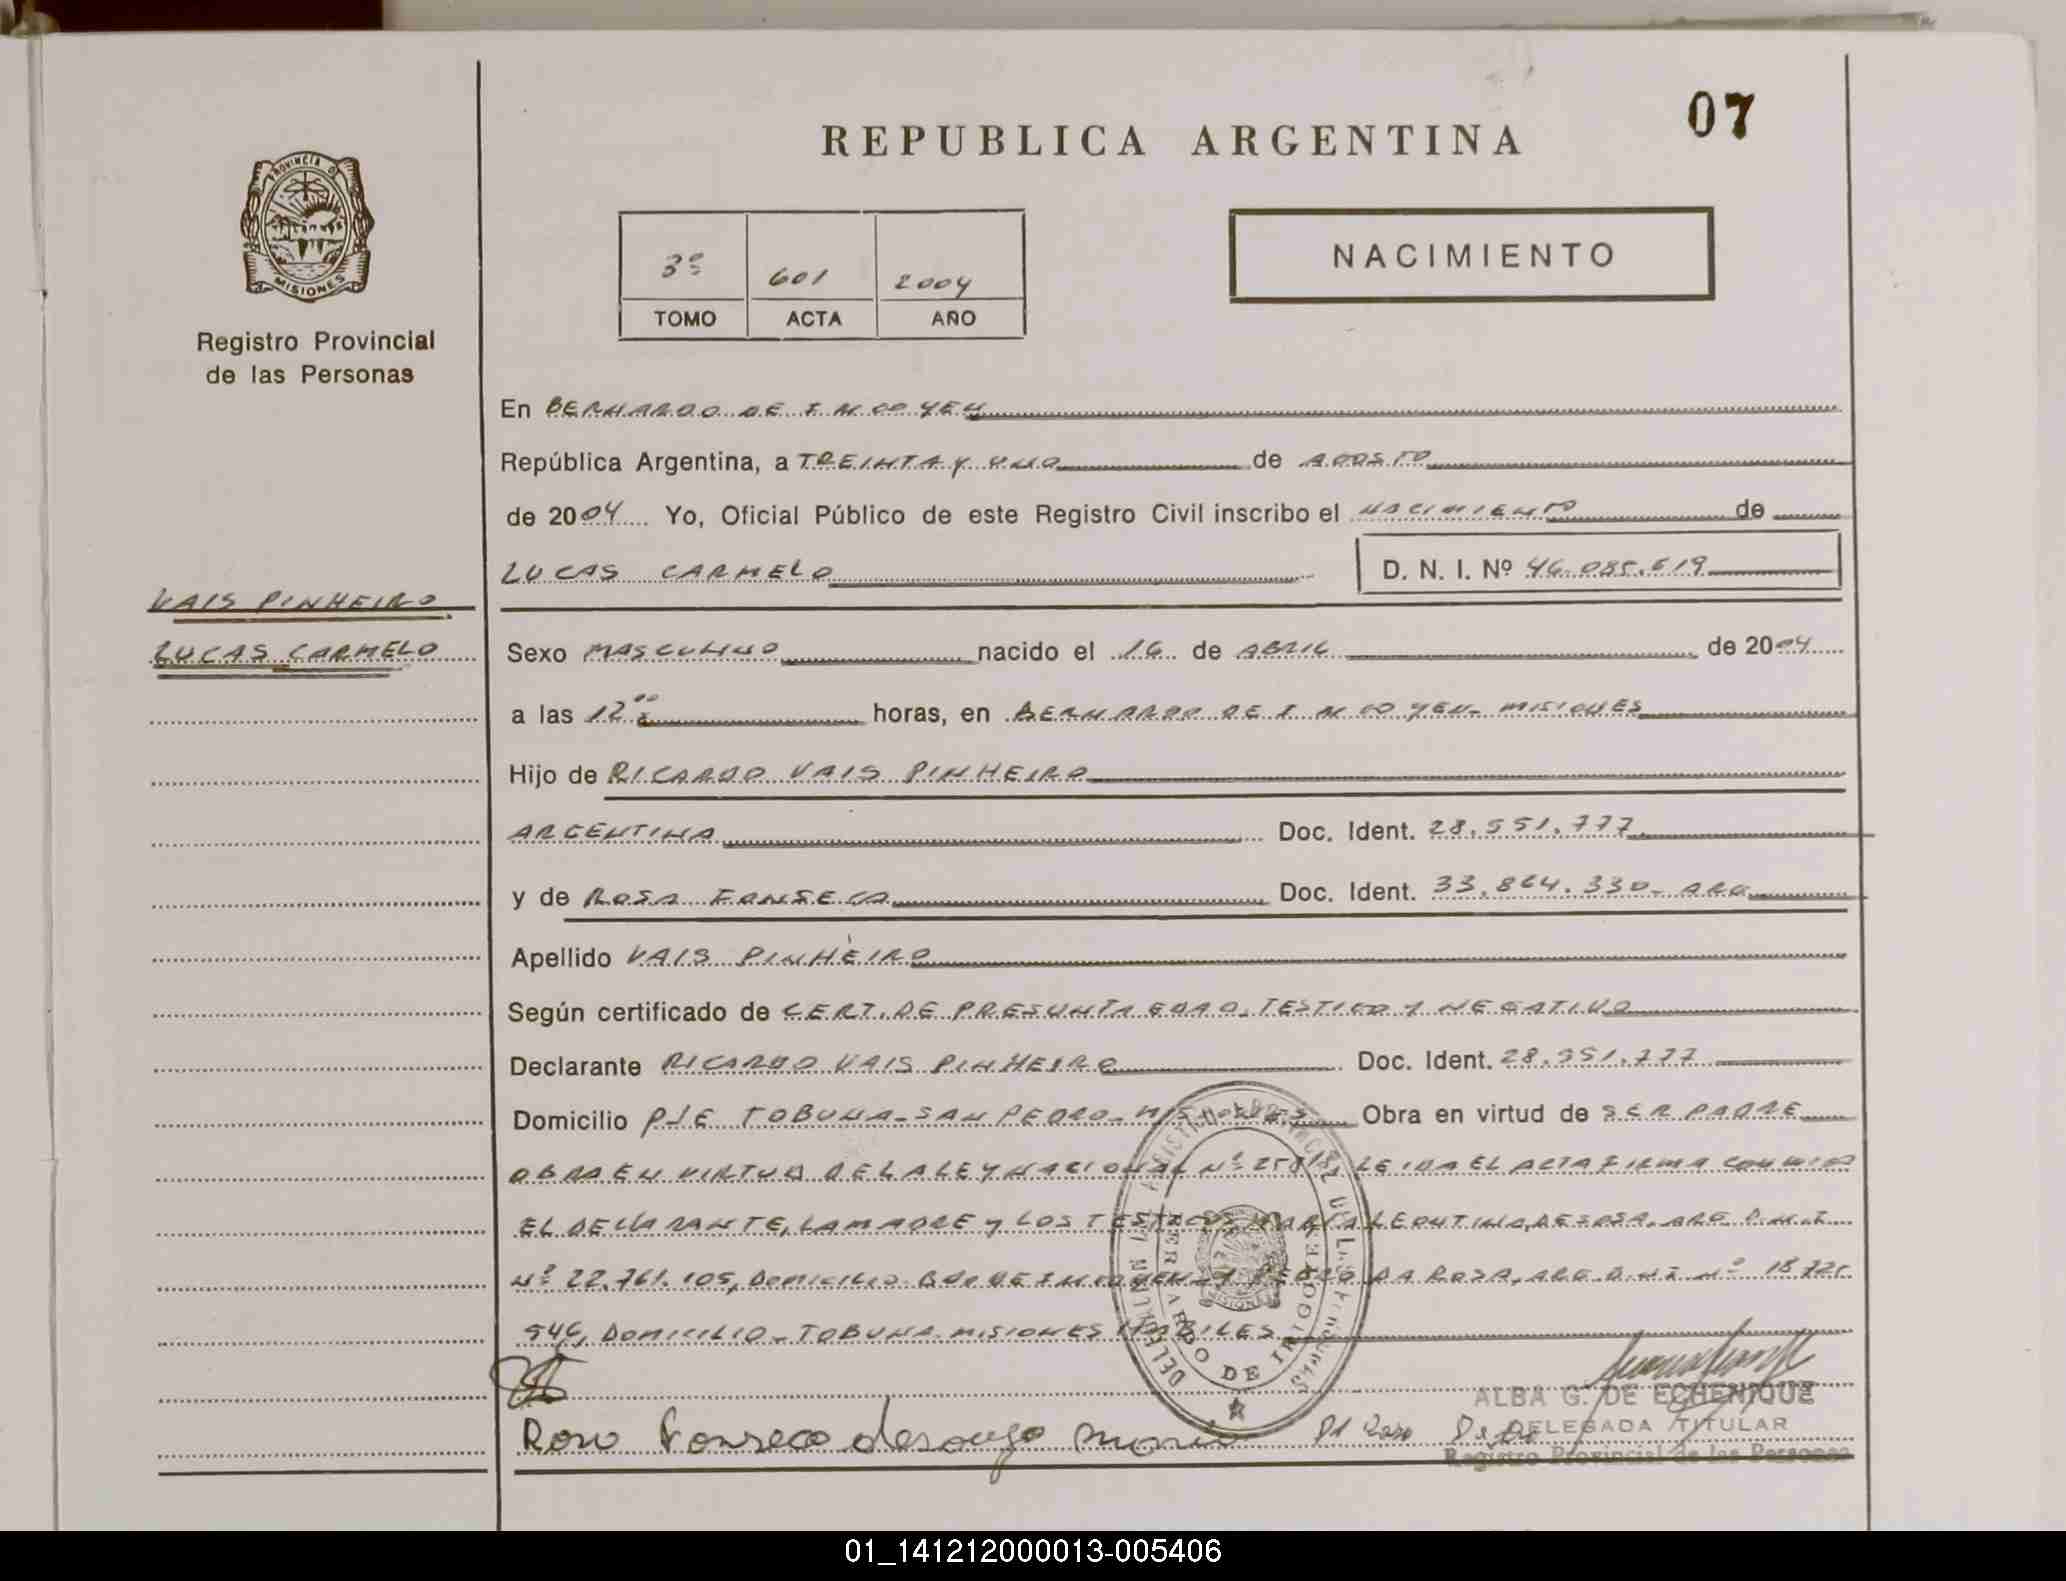 07
REPUBLICA ARGENTINA
PROVINCIA DE
MISIONES
Registro Provincial
de las Personas
NACIMIENTO
3º 601 2004
TOMO ACTA AÑO
En BERNARDO DE I
República Argentina, a TREINTA Y UNO de AGOSTO
de 2004 Yo, Oficial Público de este Registro Civil inscribo el NACIMIENTO de
LUCAS CARMELO D. N. I. Nº 46.085.619
VAIS PINHEIRO
LUCAS CARMELO
Sexo MASCULINO nacido el 16 de ABRIL de 2004
a las 12 00 horas, en BERNARDO DE I MISIONES
Hijo de RICARDO VAIS PINHEIRO
ARGENTINA Doc. Ident. 28.551.777
y de ROSA FONSECA Doc. Ident. 33.864.330- ARG.
Apellido VAIS PINHEIRO
Según certificado de CERT. DE PRESUNTA EDAD, TESTIGO Y NEGATIVO
Declarante RICARDO VAIS PINHEIRO Doc. Ident. 28.551.777
Domicilio PJE TOBUNA-SAN PEDRO-MISIONES Obra en virtud de SER PADRE
OBRA EN VIRTUD DE LA LEY NACIONAL Nº LEIDA EL ACTA FIRMA CONMIGO
EL DECLARANTE, LA MADRE Y LOS TESTIGOS MARIA LEONTINA DE SOSA, ARG D.N.I
Nº 22.761.105, DOMICILIO BDO DE Y PEDRO DA ROSA, ARG D.N.I Nº 18.725
546, DOMICILIO- TOBUNA MISIONES HABILES
BERNARDO DE IRIGOYEN
MISIONES
Rosa Fonseca
ALBA G. DE ECHENIQUE
DELEGADA TITULAR
Registro Provincial de las Personas
01_141212000013-005406